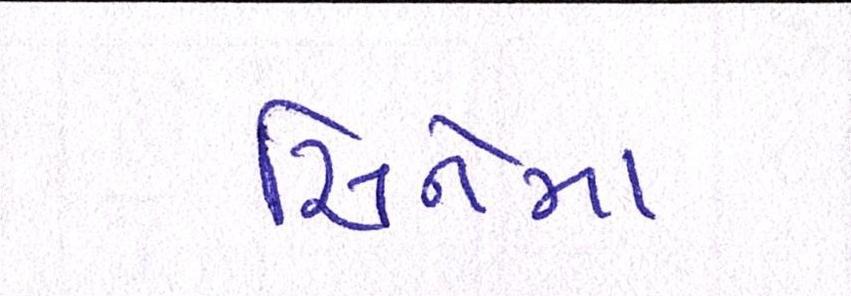 સિનેમા